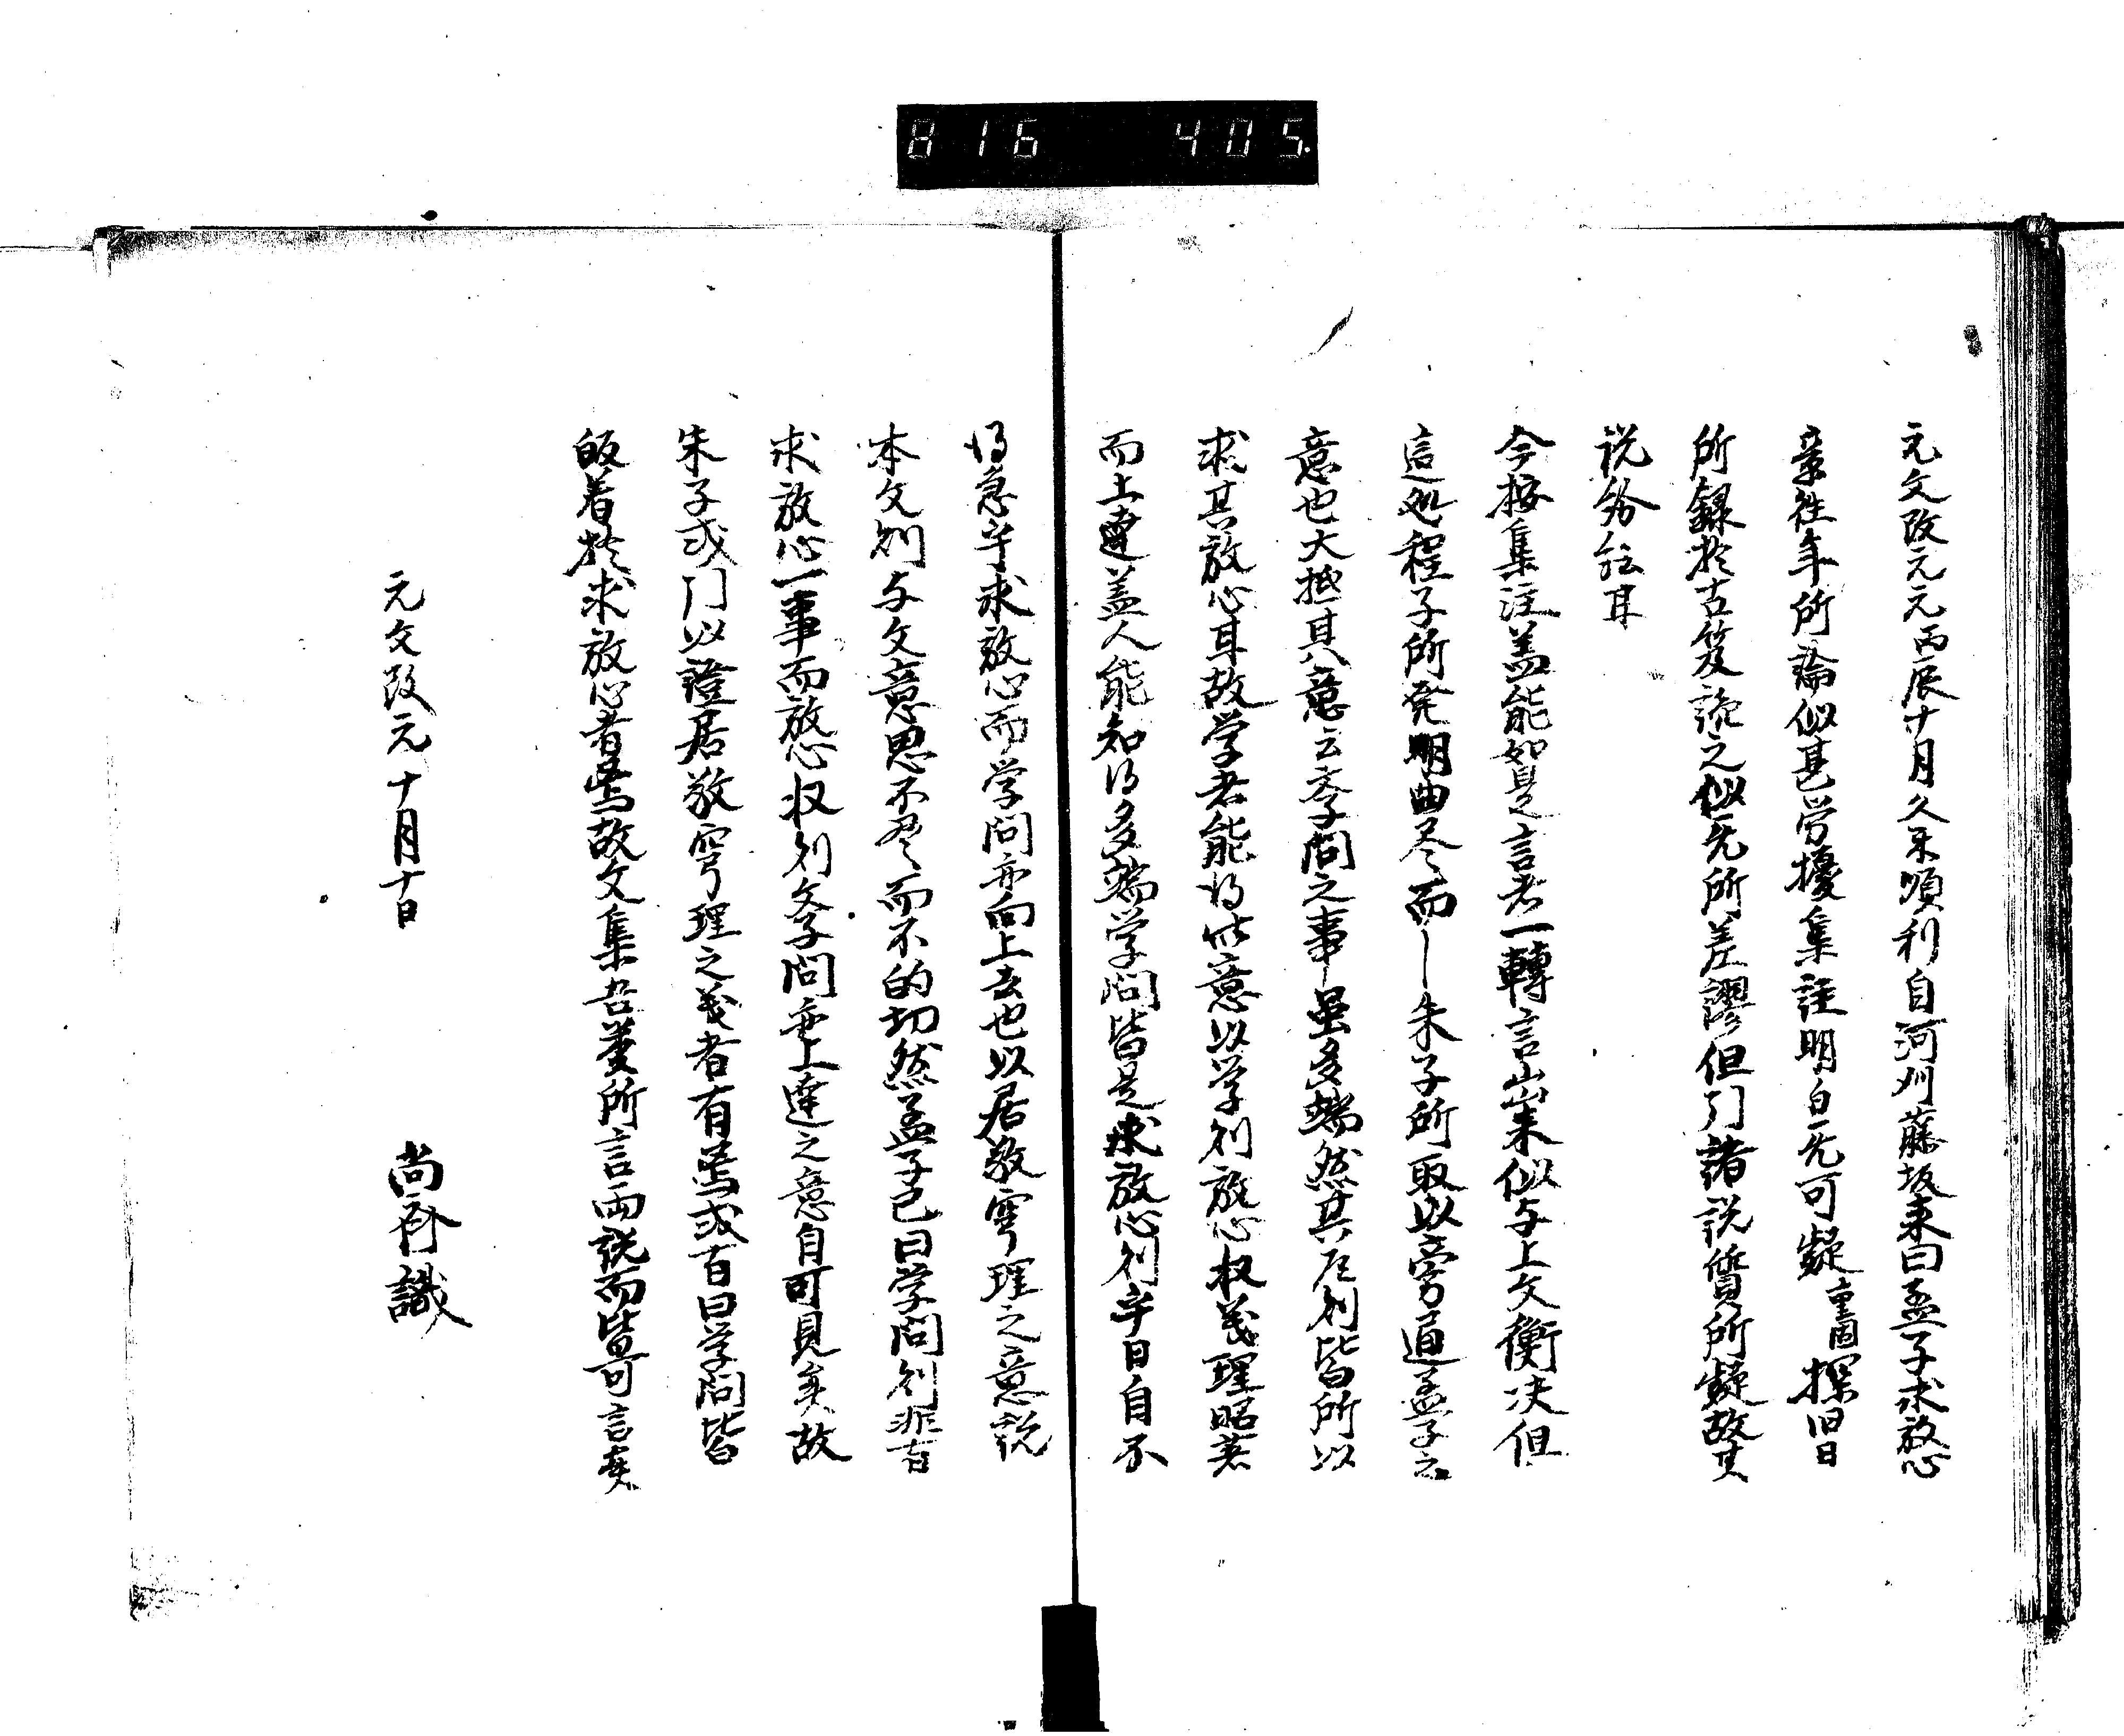 816 405.
元文改元元丙辰十月久米順利自河刕藤坂来曰孟子求放心
章往年所論似甚労擾集註明白无可疑重固探旧日
所録於古笈読之似无所差謬但門諸説質所疑故其
説紛紜耳
今按集注盖能如是之言者一轉言出来似与上文衡决但
這処程子所発明曲尽而〡朱子所取以旁通孟子之
意也大抵其意云学問之事虽多端然其居則皆所以
求其放心耳故学者能得此意以学則放心收義理昭著
而上達盖人能知得多端学問皆是求放心則平日自不
得急乎求放心而学問亦向上去也以居敬窮理之意説
本文則与文意思不尽而不的切然孟子已曰学問則非古
求放心一事而放心收則文学問亦上達之意自可見矣故
朱子或門以證居敬窮理之義者有焉或古曰学問皆
皈着於求放心者焉故文集吾輩所言両説而皆可言矣
元文改元十月十日
尚斎識